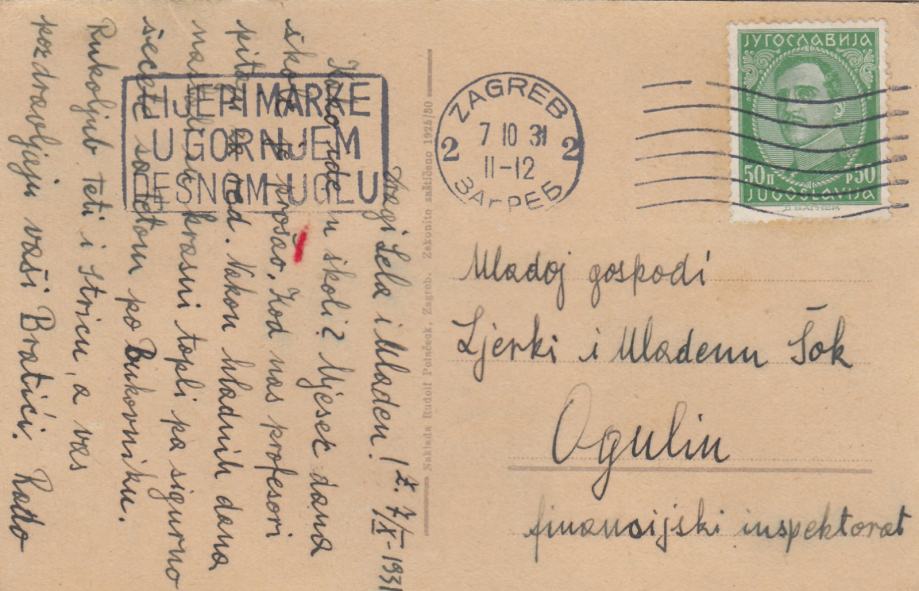 Dragi Lela i Mladen! Z. 7/X-1931
Kako ide u školi? Mjesec dana
škole je prošao. Kod nas profesori
pitaju red. Nakon hladnih dana
nastali su krasni topli pa sigurno
šećete sa tetom po Bukovniku.
Rukoljub teti i stricu, a vas
pozdravljaju vaši Bratići. Rado
LIJEPI MARKE
U GORNJEM
DESNOM UGLU
Naklada Rudolf Polaček, Zagreb. Zakonito zaštićeno 1925/30
ZAGREB
2 7 10 31 2
11-12
ЗАГРЕБ
ЈУГОСЛАВИЈА
50п p50
JUGOSLAVIJA
Mladoj gospodi
Ljerki i Mladenu Šok
Ogulin
financijski inspektorat